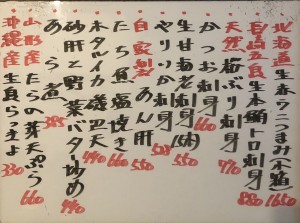 北海道 生春ウニつまみ(本箱) 1650
長崎五島 生本鮪トロ刺身 880
天然 桜ぶり刺身 770
かつお刺身 660
生甘海老刺身(5本) 550
やりいか刺身 660
自家製 あん肝 550
たち魚塩焼き 660
ホタルイカ磯辺天 440
砂肝と野菜バター炒め 770
あら煮
山形産 たらの芽天ぷら 660
沖縄産 生島らっきょ 330